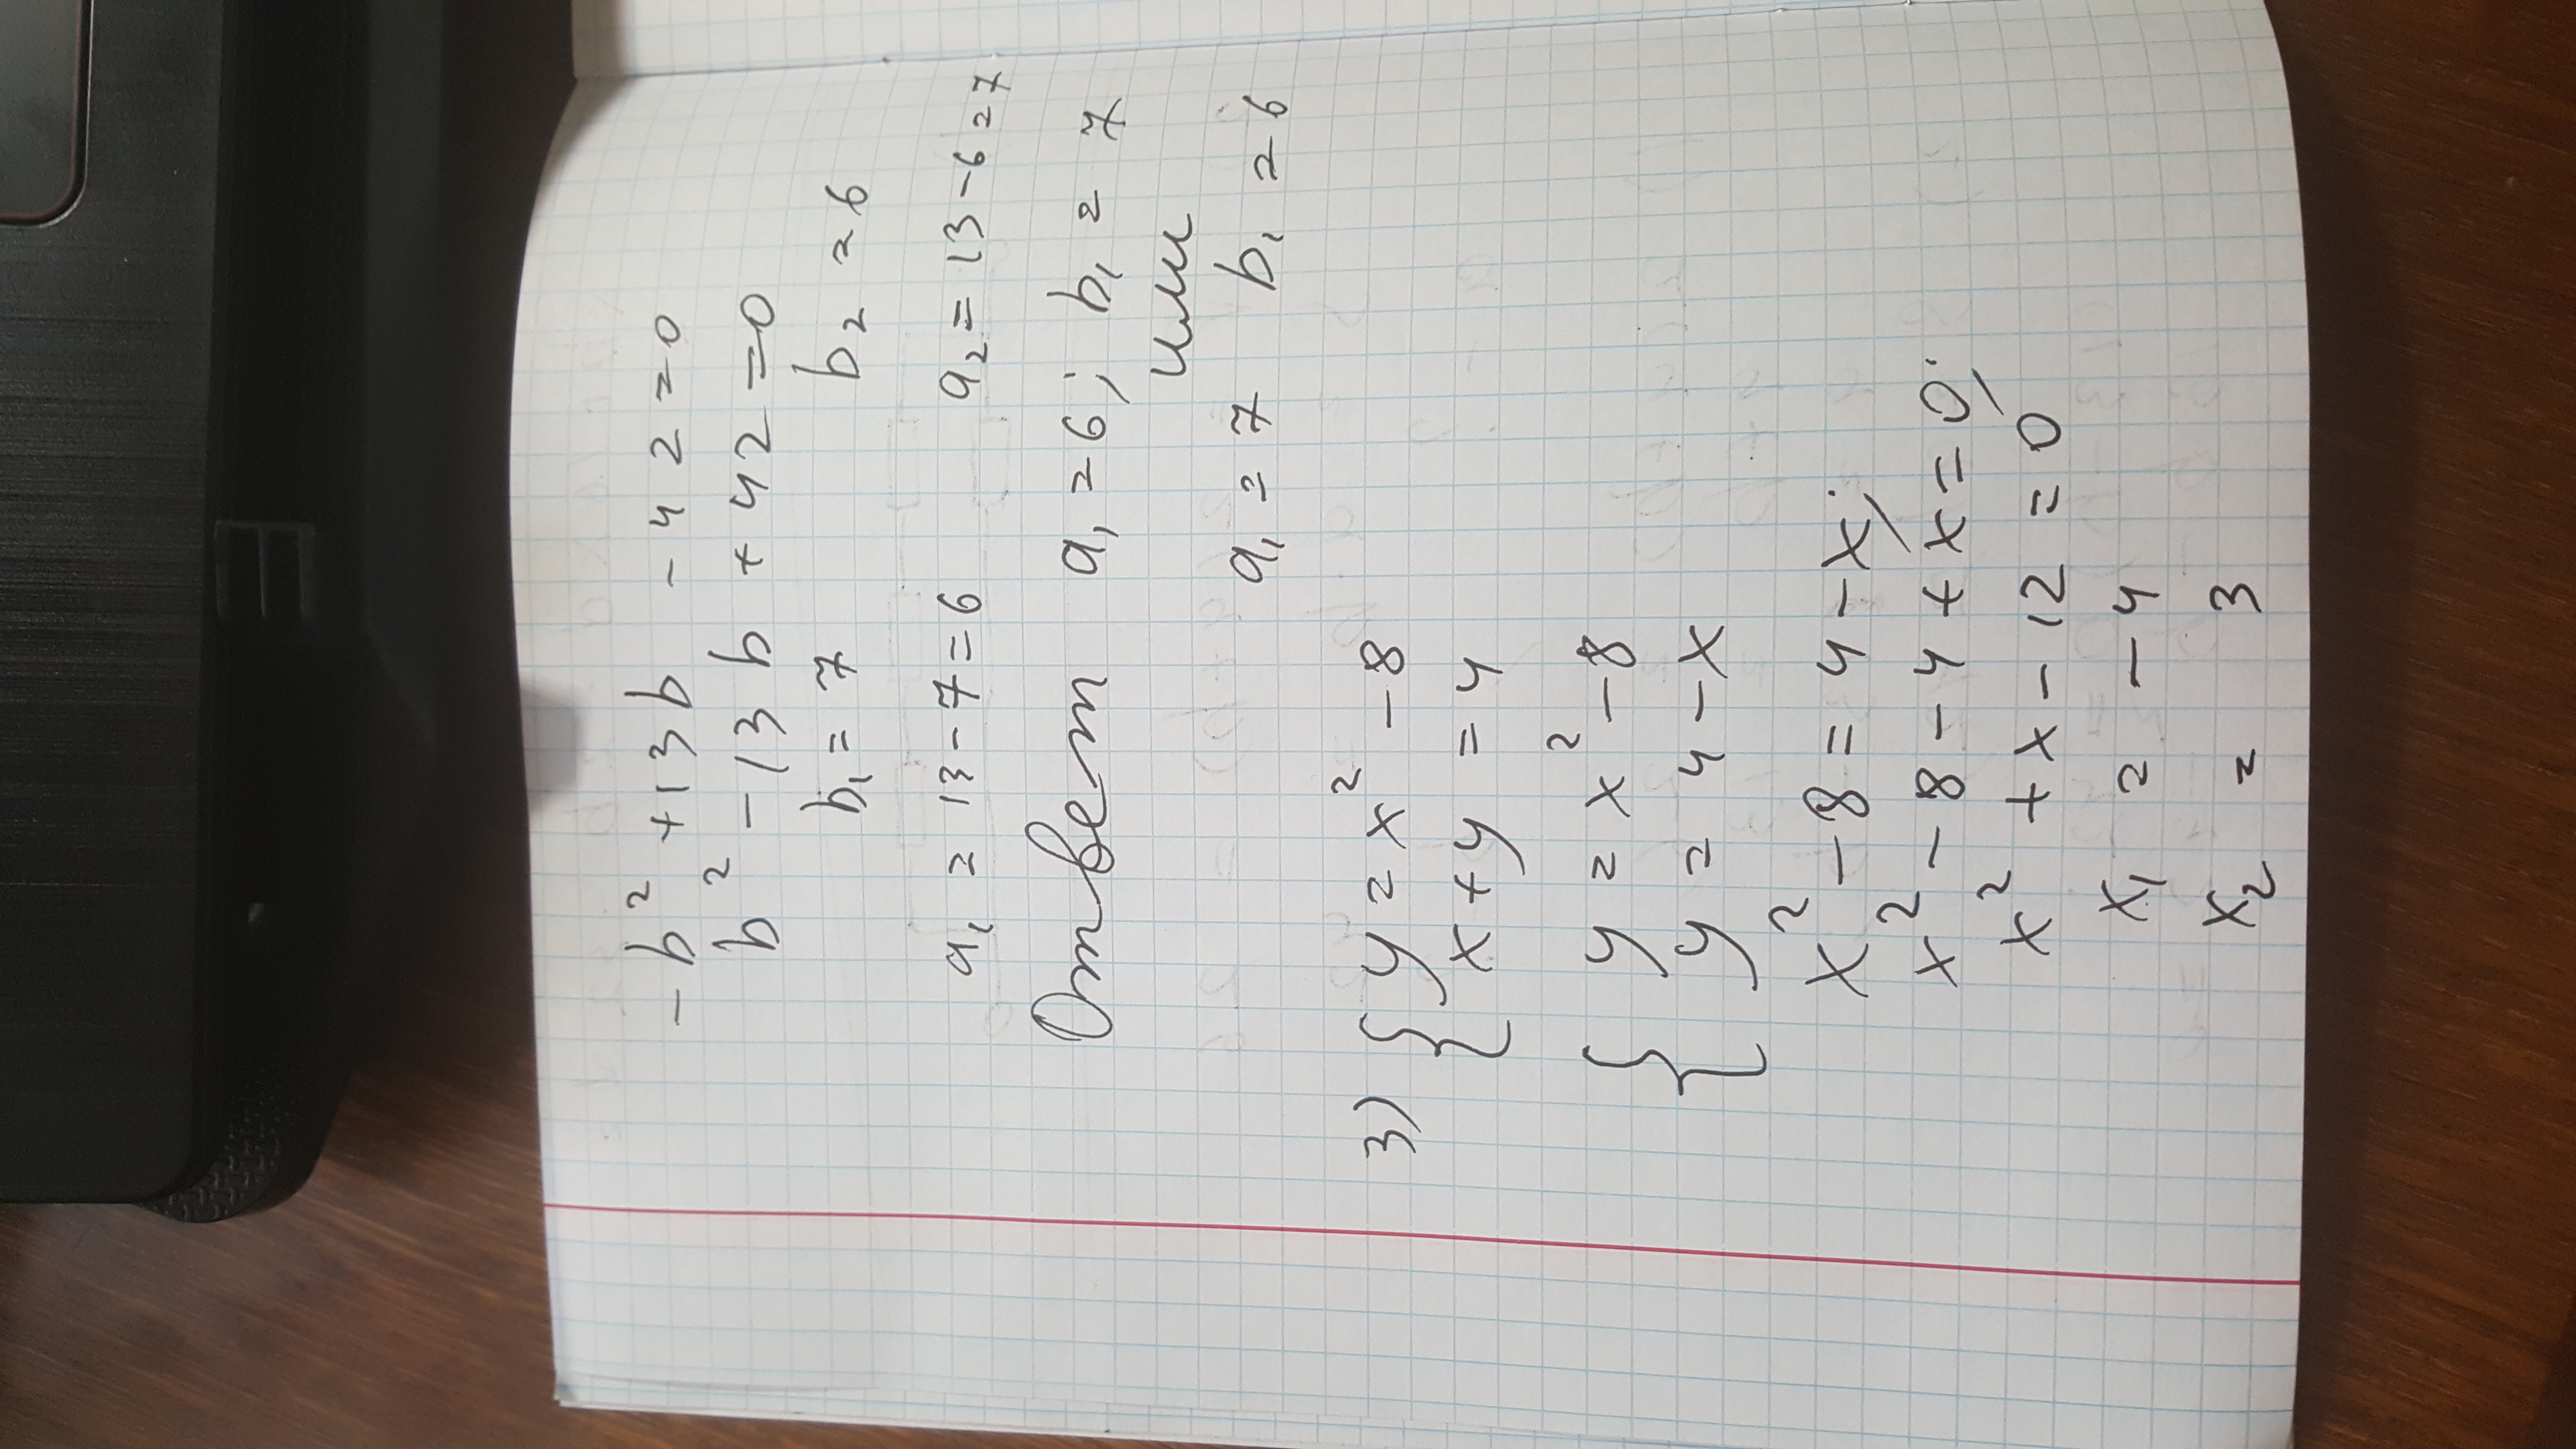 -b² +13b -42=0
b² -13b +42=0
b₁=7 b₂=6
a₁=13-7=6 a₂=13-6=7
Ответ a₁=6; b₁=7
или
a₁=7 b₁=6
3) { y=x²-8
x+y=4
{ y=x²-8
y=4-x
x²-8=4-x;
x²-8-4+x=0;
x²+x-12=0
x₁=-4
x₂=3